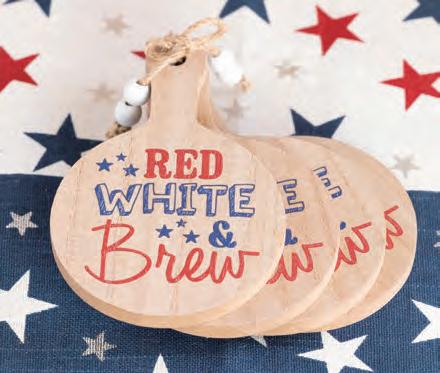 RED
WHITE
&
Brew
E
E
w
w
w